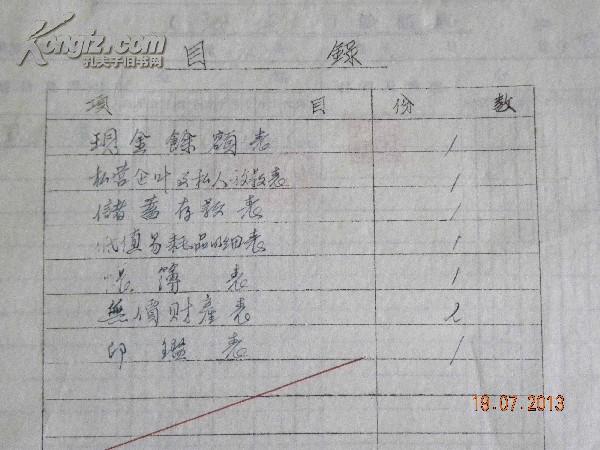 Kongfz.com
孔夫子旧书网
目 錄
項 目 份 数
現金餘額表 1
私营企叶及私人放款表 1
儲蓄存款表 1
低值易耗品明细表 1
帐簿表 1
無價財產表 2
印鑑表 1
18.07.2013